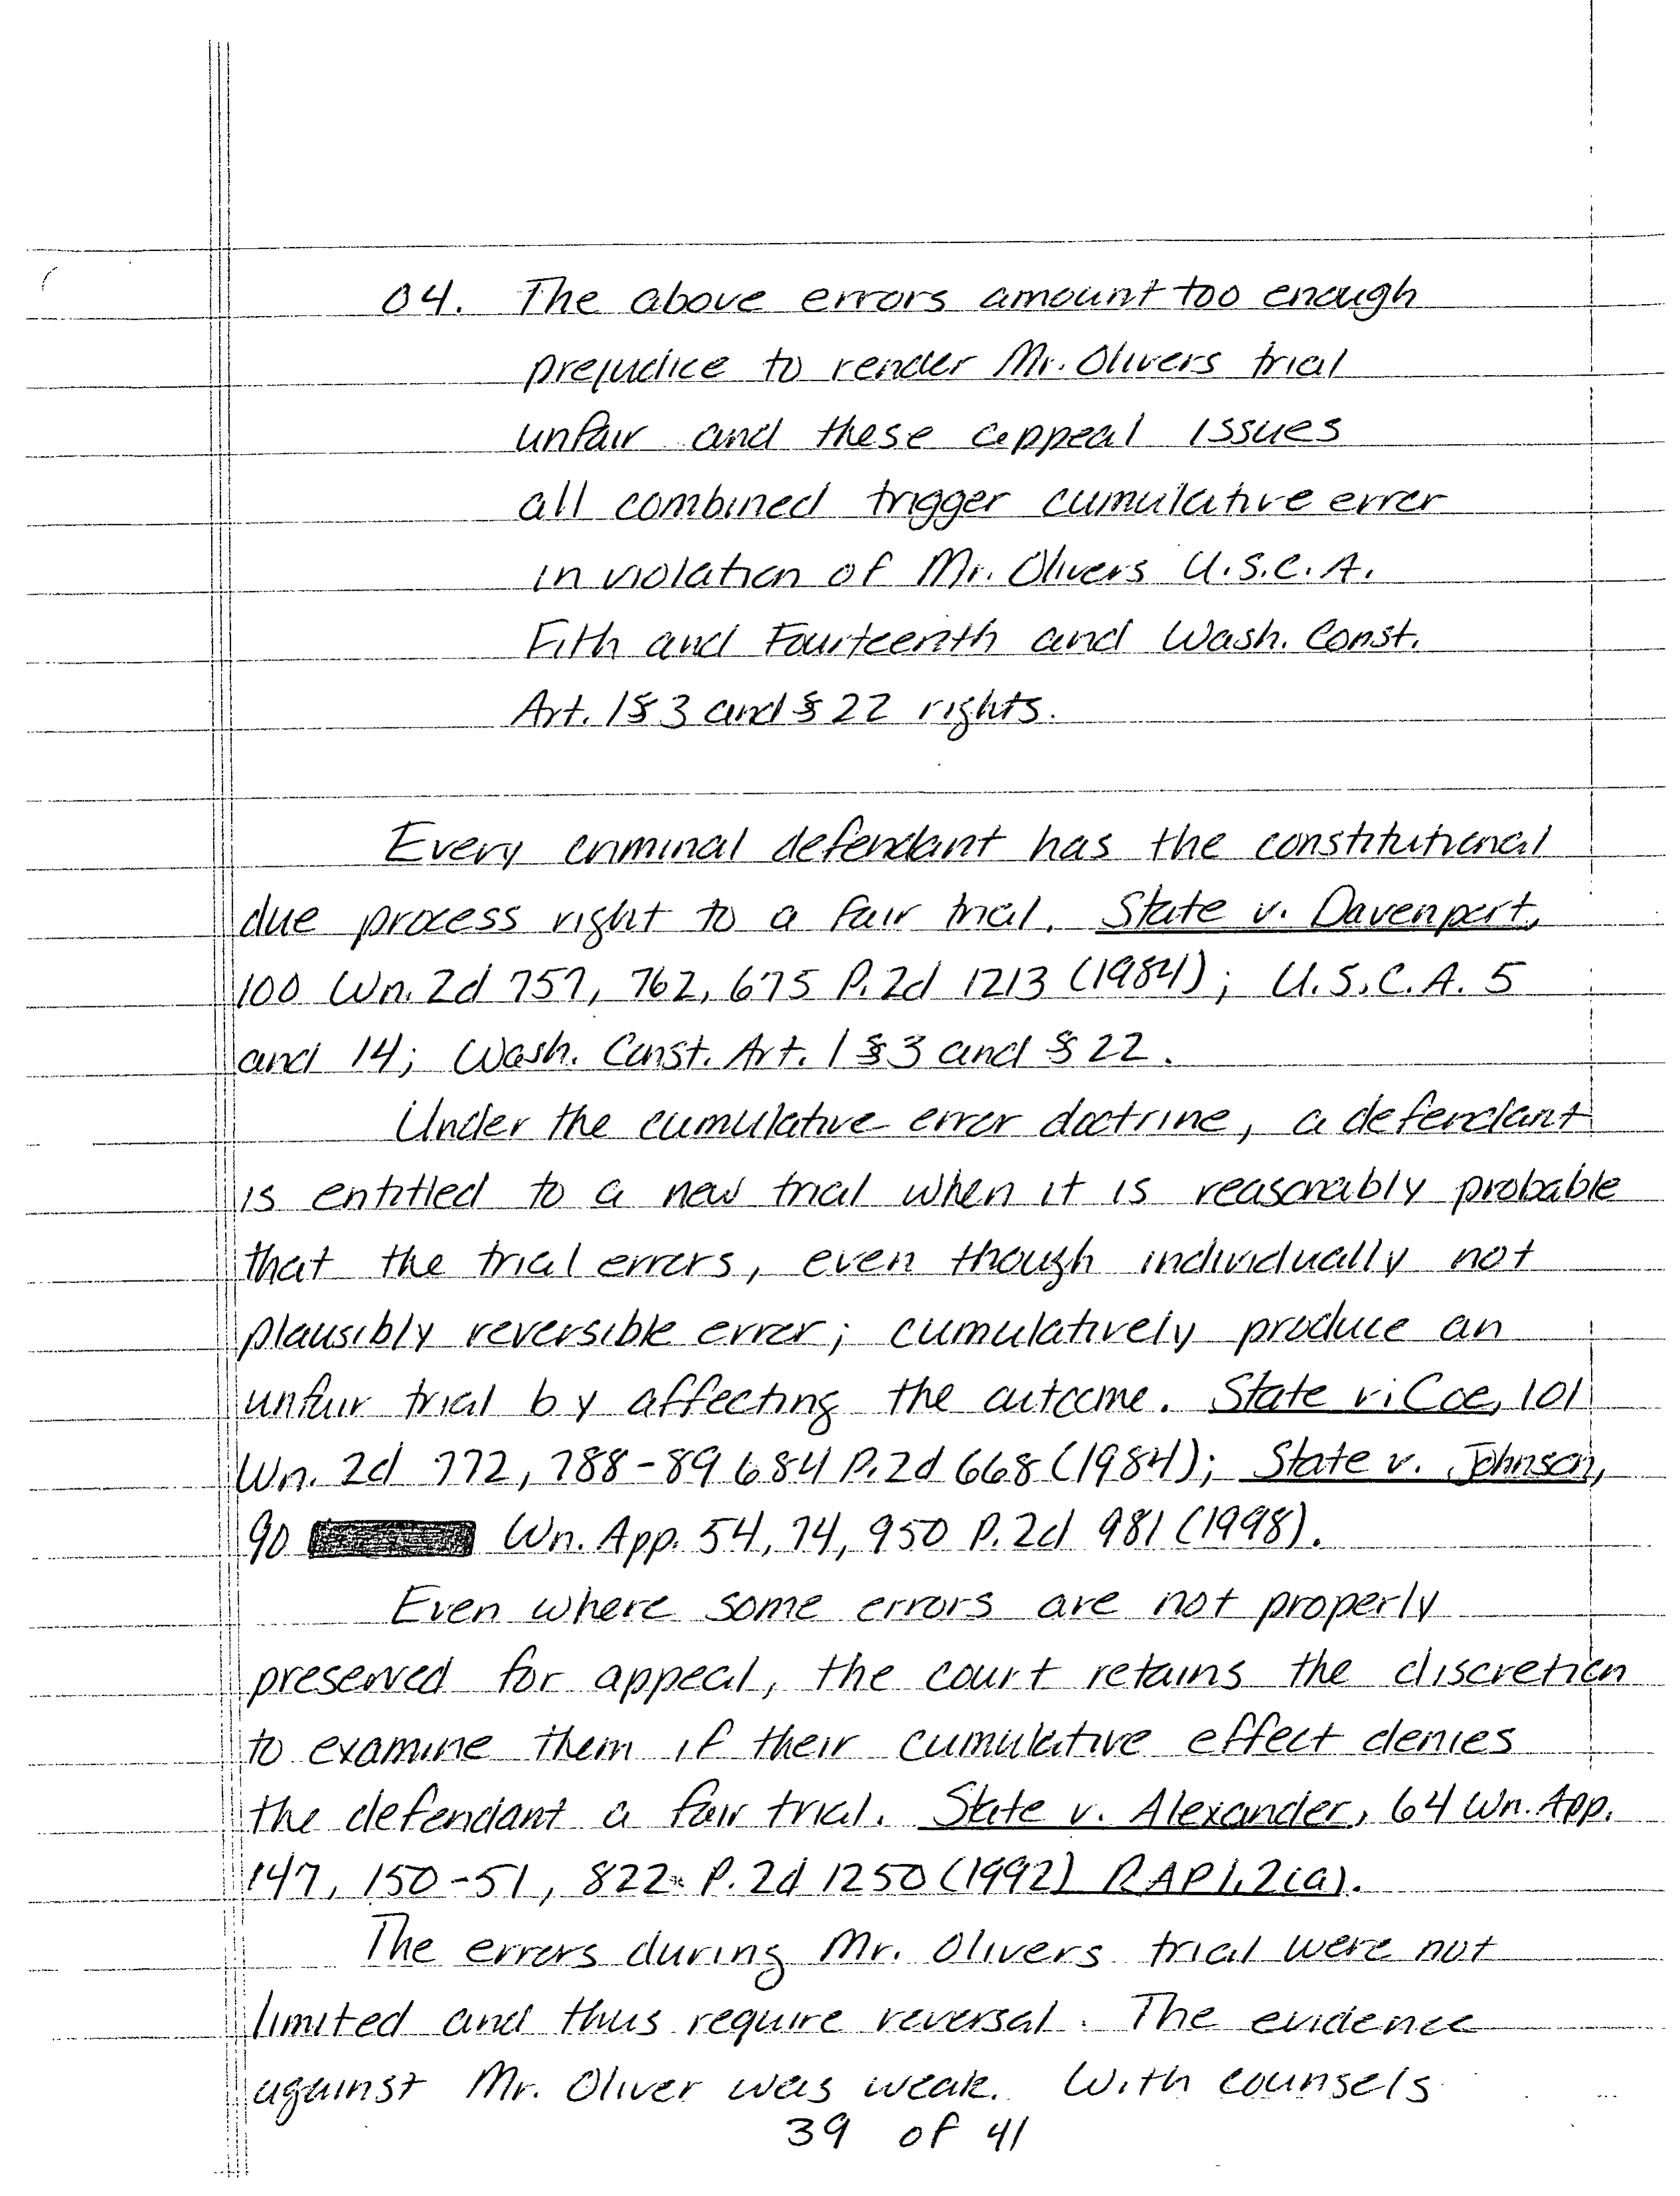 04. The above errors amount too enough
prejudice to render Mr. Olivers trial
unfair and these appeal issues
all combined trigger cumulative error
in violation of Mr. Olivers U.S.C.A.
Fith and Fourteenth and Wash. Const.
Art. 1 § 3 and § 22 rights.
Every criminal defendant has the constitutional
due process right to a fair trial. State v. Davenport,
100 Wn. 2d 757, 762, 675 P. 2d 1213 (1984); U.S.C.A. 5
and 14; Wash. Const. Art. 1 § 3 and § 22.
Under the cumulative error doctrine, a defendant
is entitled to a new trial when it is reasonably probable
that the trial errors, even though individually not
plausibly reversible error; cumulatively produce an
unfair trial by affecting the outcome. State v. Coe, 101
Wn. 2d 772, 788-89 684 P. 2d 668 (1984); State v. Johnson,
90 Wn. App. 54, 74, 950 P. 2d 981 (1998).
Even where some errors are not properly
preserved for appeal, the court retains the discretion
to examine them if their cumulative effect denies
the defendant a fair trial. State v. Alexander, 64 Wn. App.
147, 150-51, 822 P. 2d 1250 (1992) RAP 1.2(a).
The errors during Mr. Olivers trial were not
limited and thus require reversal. The evidence
against Mr. Oliver was weak. With counsels
39 of 41